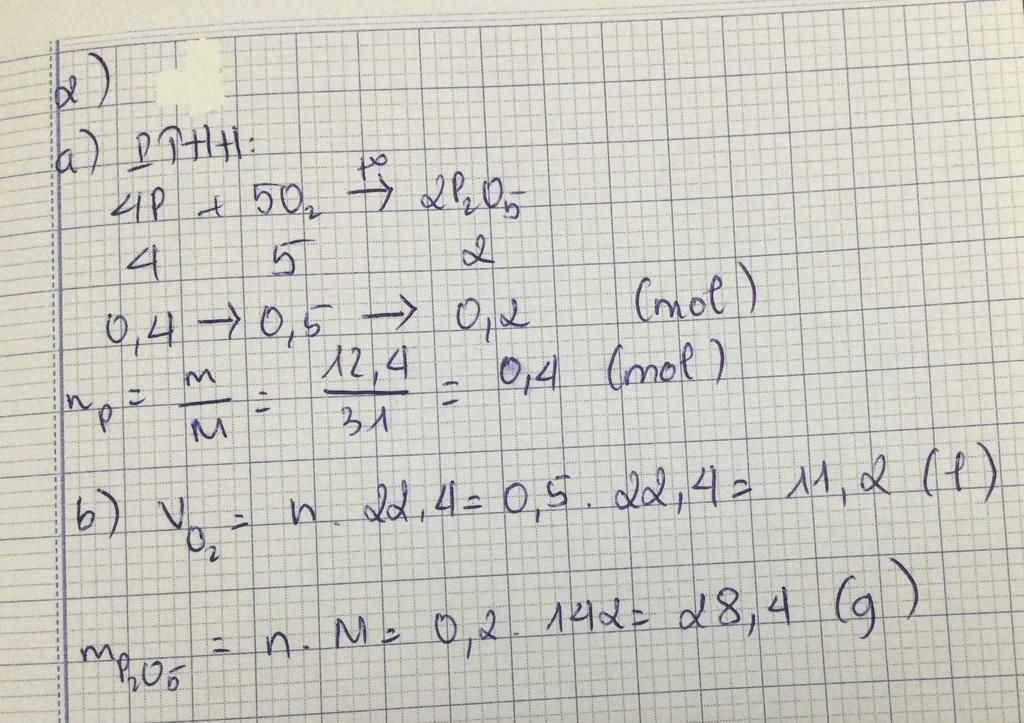 2)
a) PTHH:
4P + 5O₂ →(t°) 2P₂O₅
4 5 2
0,4 → 0,5 → 0,2 (mol)
n_P = m/M = 12,4/31 = 0,4 (mol)
b) V_O₂ = n. 22,4 = 0,5. 22,4 = 11,2 (l)
m_P₂O₅ = n. M = 0,2. 142 = 28,4 (g)